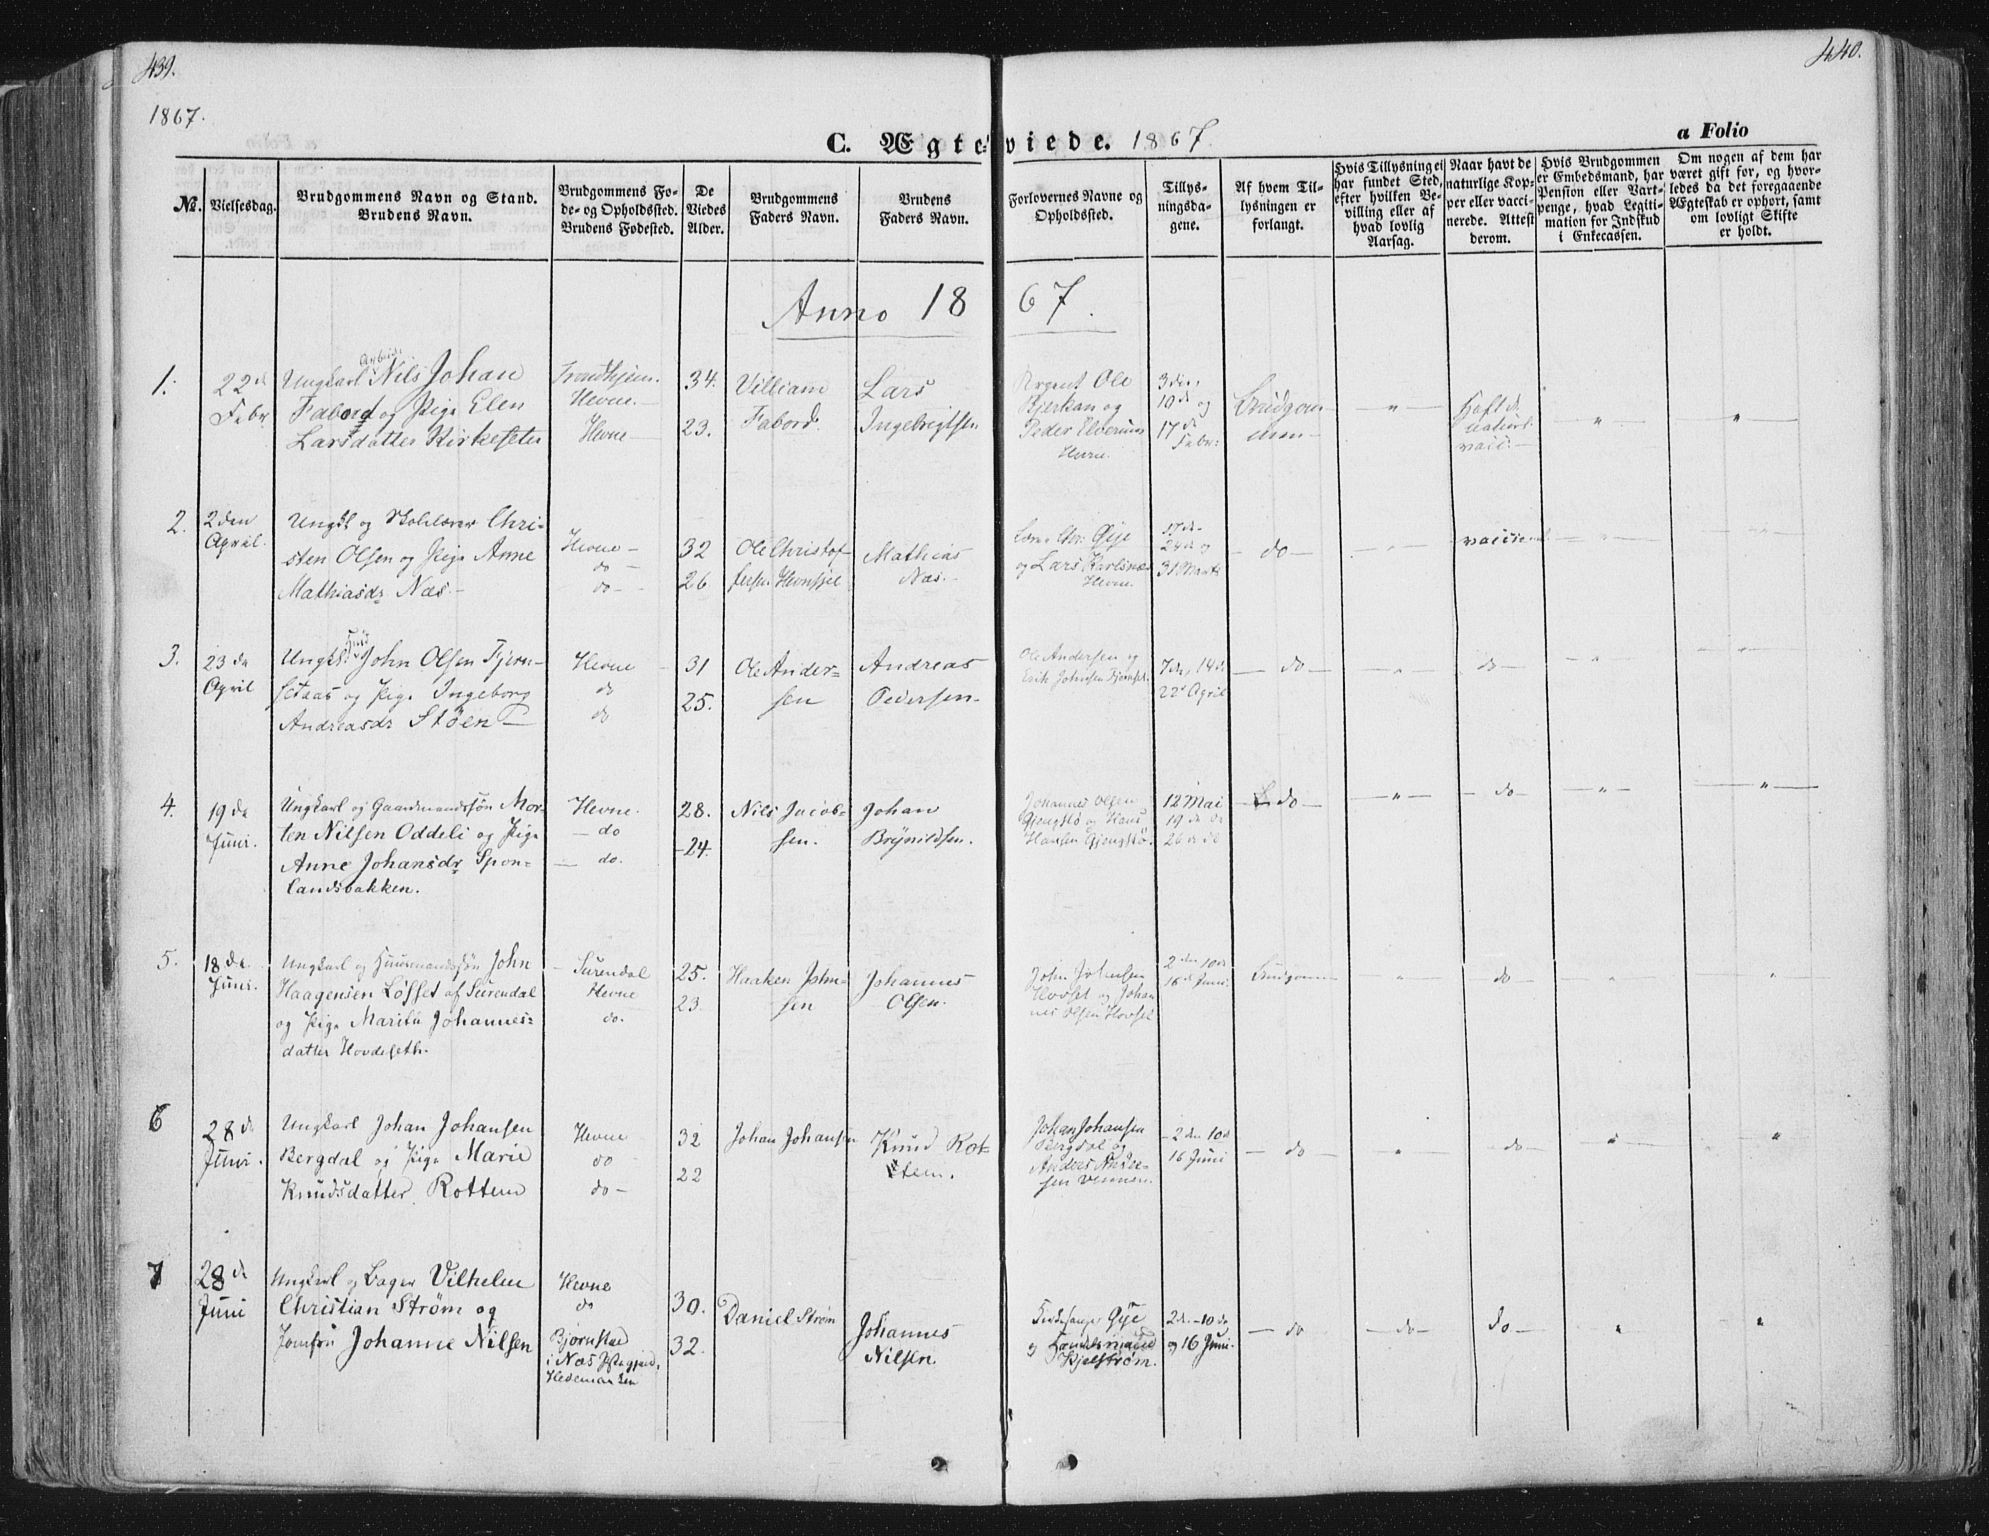 439.
440.
1867.
C. Ægteviede. 1867.
a Folio
No.
Vielsesdag.
Brudgommens Navn og Stand.
Brudens Navn.
Brudgommens Fø-
de- og Opholdssted.
Brudens Fødested.
De
Viedes
Alder.
Brudgommens
Faders Navn.
Brudens
Faders Navn.
Forlovernes Navne og
Opholdssted.
Tillys-
ningsda-
gene.
Af hvem Til-
lysningen er
forlangt.
Hvis Tillysning ei
har fundet Sted,
efter hvilken Be-
villing eller af
hvad lovlig
Aarsag.
Naar havt de
naturlige Kop-
per eller vacci-
nerede. Attest
derom.
Hvis Brudgommen
er Embedsmand, har
Pension eller Vart-
penge, hvad Legiti-
mation for Indskud
i Enkecassen.
Om nogen af dem har
været gift før, og hvor-
ledes da det foregaaende
Ægteskab er ophørt, samt
om lovligt Skifte
er holdt.
Anno 1867.
1.
22d
Febr
Ungkarl Nils Johan
Fabord og Pige Elen
Larsdatter Kirkesæter
Trondhjem.
Hevne.
Hevne
34.
23.
Villiam
Fabord.
Lars
Ingebrigtsen
Agent Ole
Bjerkan og
Peder Elverum
Hevne.
3die,
10de og
17de
Febr:
Brudgom-
men
"
Havt de
naturl.
vacc.
"
"
2.
2den
April.
Ungk. og Skolelærer Chri-
sten Olsen og Pige Anne
Mathiasdr Næs.
Hevne
do
do
32
26
Ole Christof-
fersen Hevnskjel
Mathias
Næs.
Chr. Gije
og Lars Karlsnæs
Hevne.
17de
24de og
31 Marts
do
"
vaccine
"
"
3.
23de
April
Ungk. John Olsen Fjern-
staas og Pige Ingeborg
Andreasdr Støen
Hevne
do
do
31
25.
Ole Ander-
sen
Andreas
Pedersen
Ole Andersen og
Erik Johnsen
7de, 14de
22 April
do
"
do
"
"
4.
19de
Juni.
Ungkarl og Gaardmandssøn Mor-
ten Nilsen Oddeli og Pige
Anne Johansdr Spon-
landsbakken.
Hevne.
do
do.
28.
24.
Nils Jacob-
sen.
Johan
Brynildsen.
Johannes Olsen
Gjengstø og Hans
Hansen Gjengstø.
12 Mai
19de do
26 do
do
"
do
"
"
5.
18de
Juni.
Ungkarl og Huusmandssøn John
Haagensen Løsset af Surendal
og Pige Marith Johannes-
datter Hovdeseth.
Surendal
Hevne
do.
25.
23.
Haaken John-
sen
Johannes
Olsen.
John Johansen
Hovset og Johan
nes Olsen Hovset
2den 10de
16de Juni.
Brudgommen
"
do
"
"
6
28de
Juni.
Ungkarl Johan Johansen
Bergdal og Pige Marie
Knudsdatter Rottem
Hevne
do
do
32
22
Johan Johansen
Knud Rot-
tem.
Johan Johansen
Bergdal og
Anders Ander-
sen
2den 10de
16 Juni
do
"
do
"
"
7
28de
Juni
Ungkarl og Bager Vilhelm
Christian Strøm og
Jomfru Johanne Nilsen
Hevne
do
Bjørnstad
i Næs Præstgjæld,
Hedemarken
30.
32.
Daniel Strøm
Johannes
Nilsen.
Kirkesanger Gije
og Lensmand
Kjelstrøm.
2den 10de
og 16 Juni.
do
do
do
"
"